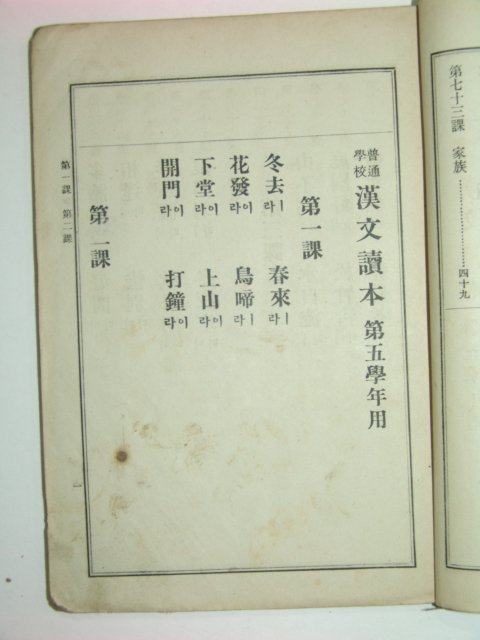 第七十三課 家族……………………四十九
普通學校 漢文讀本 第五學年用
第一課
冬去ㅣ라 春來ㅣ라
花發이라 鳥啼ㅣ라
下堂이라 上山이라
開門이라 打鐘이라
第二課
第一課 第二課
一